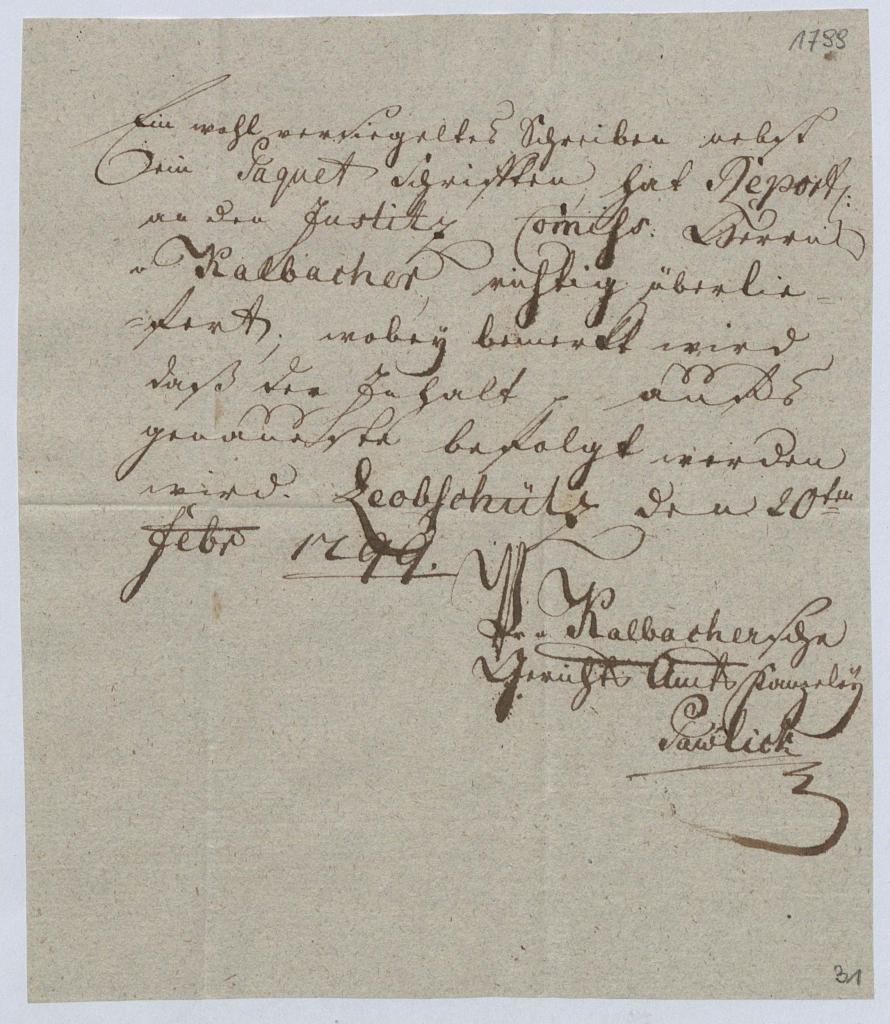 1799
Ein wohl versiegeltes Schreiben nebst
ein Paquet Schriften, hat Report:
an den Justitz Com̄ihs: Herrn
v Kalbacher, richtig überlie=
=fert, wobey bemerkt wird
daß der Inhalt aufs
genaueste befolgt werden
wird. Leobschütz den 20ten
Febr 1799.
v Kalbachersche
Gerichts Amts Kanzeley
Pawlick
31